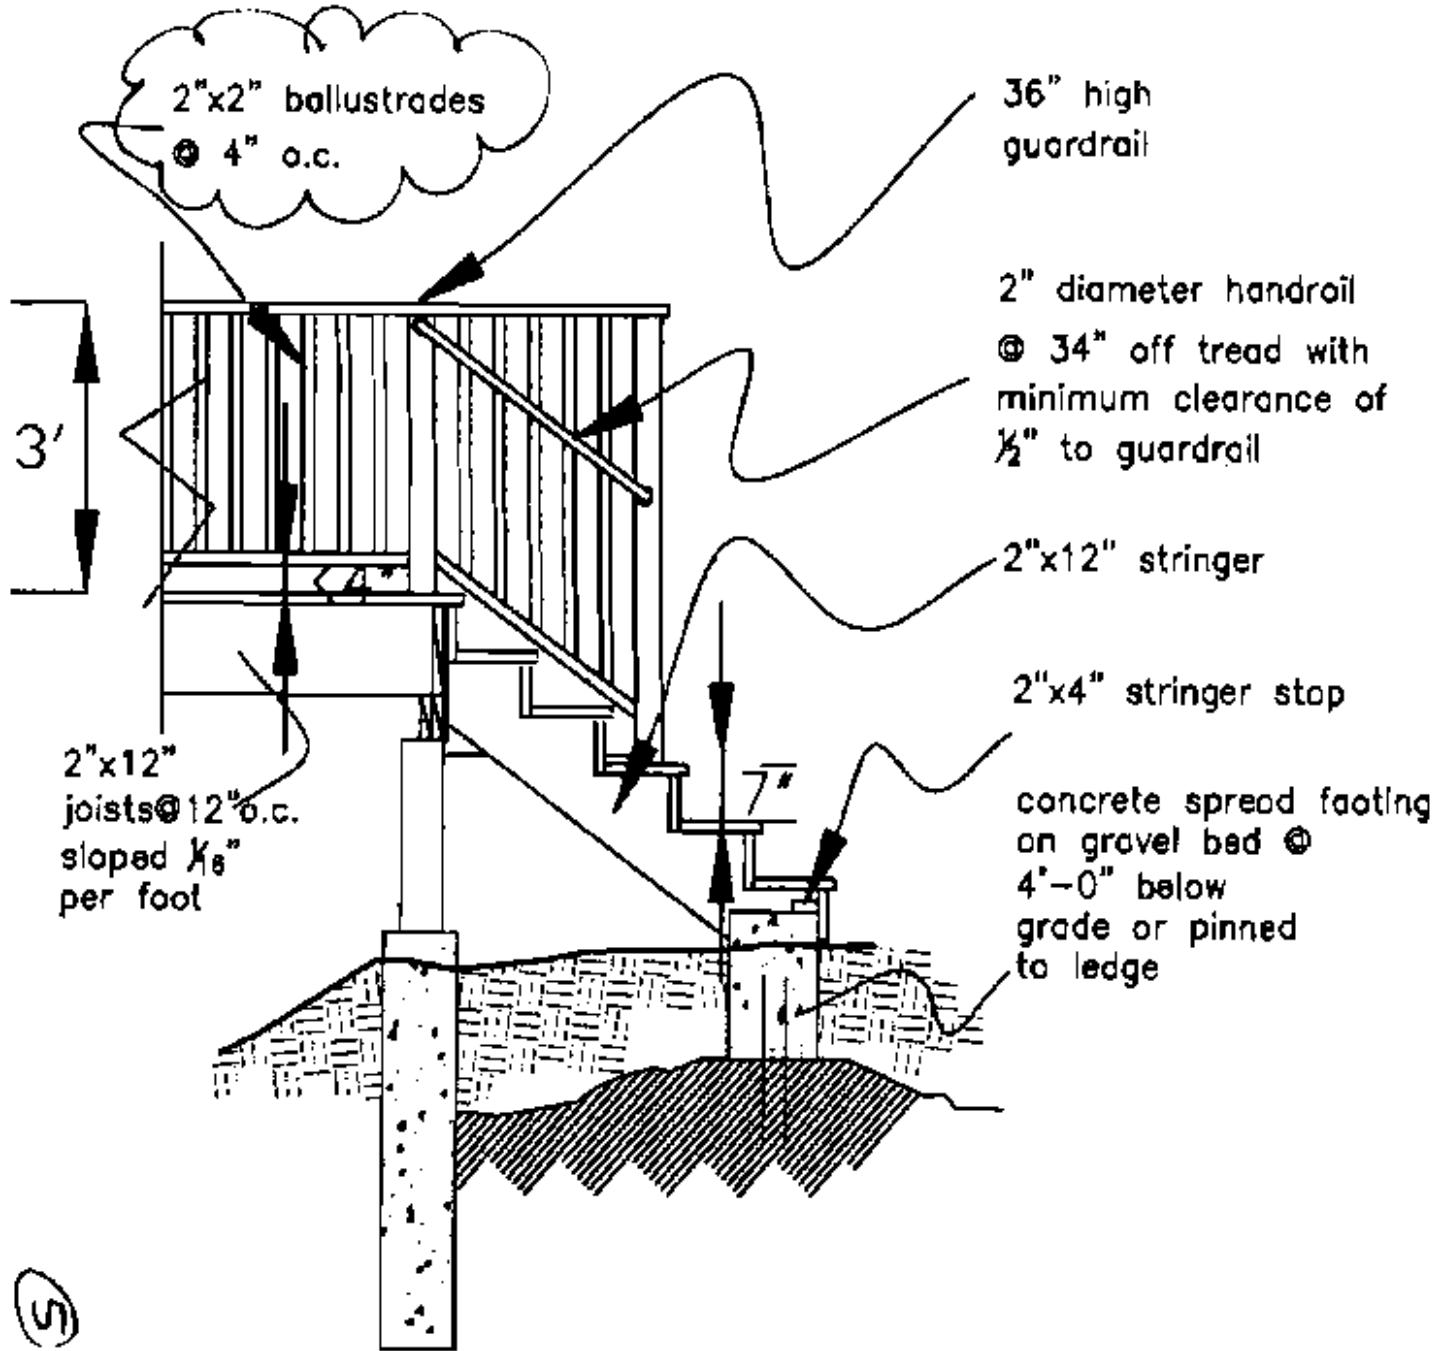 2"x2" ballustrades
@ 4" o.c.
36" high
guardrail
2" diameter handrail
@ 34" off tread with
minimum clearance of
½" to guardrail
3'
4"
2"x12" stringer
2"x4" stringer stop
7"
2"x12"
joists@12"o.c.
sloped 1/16"
per foot
concrete spread footing
on gravel bed @
4'-0" below
grade or pinned
to ledge
5